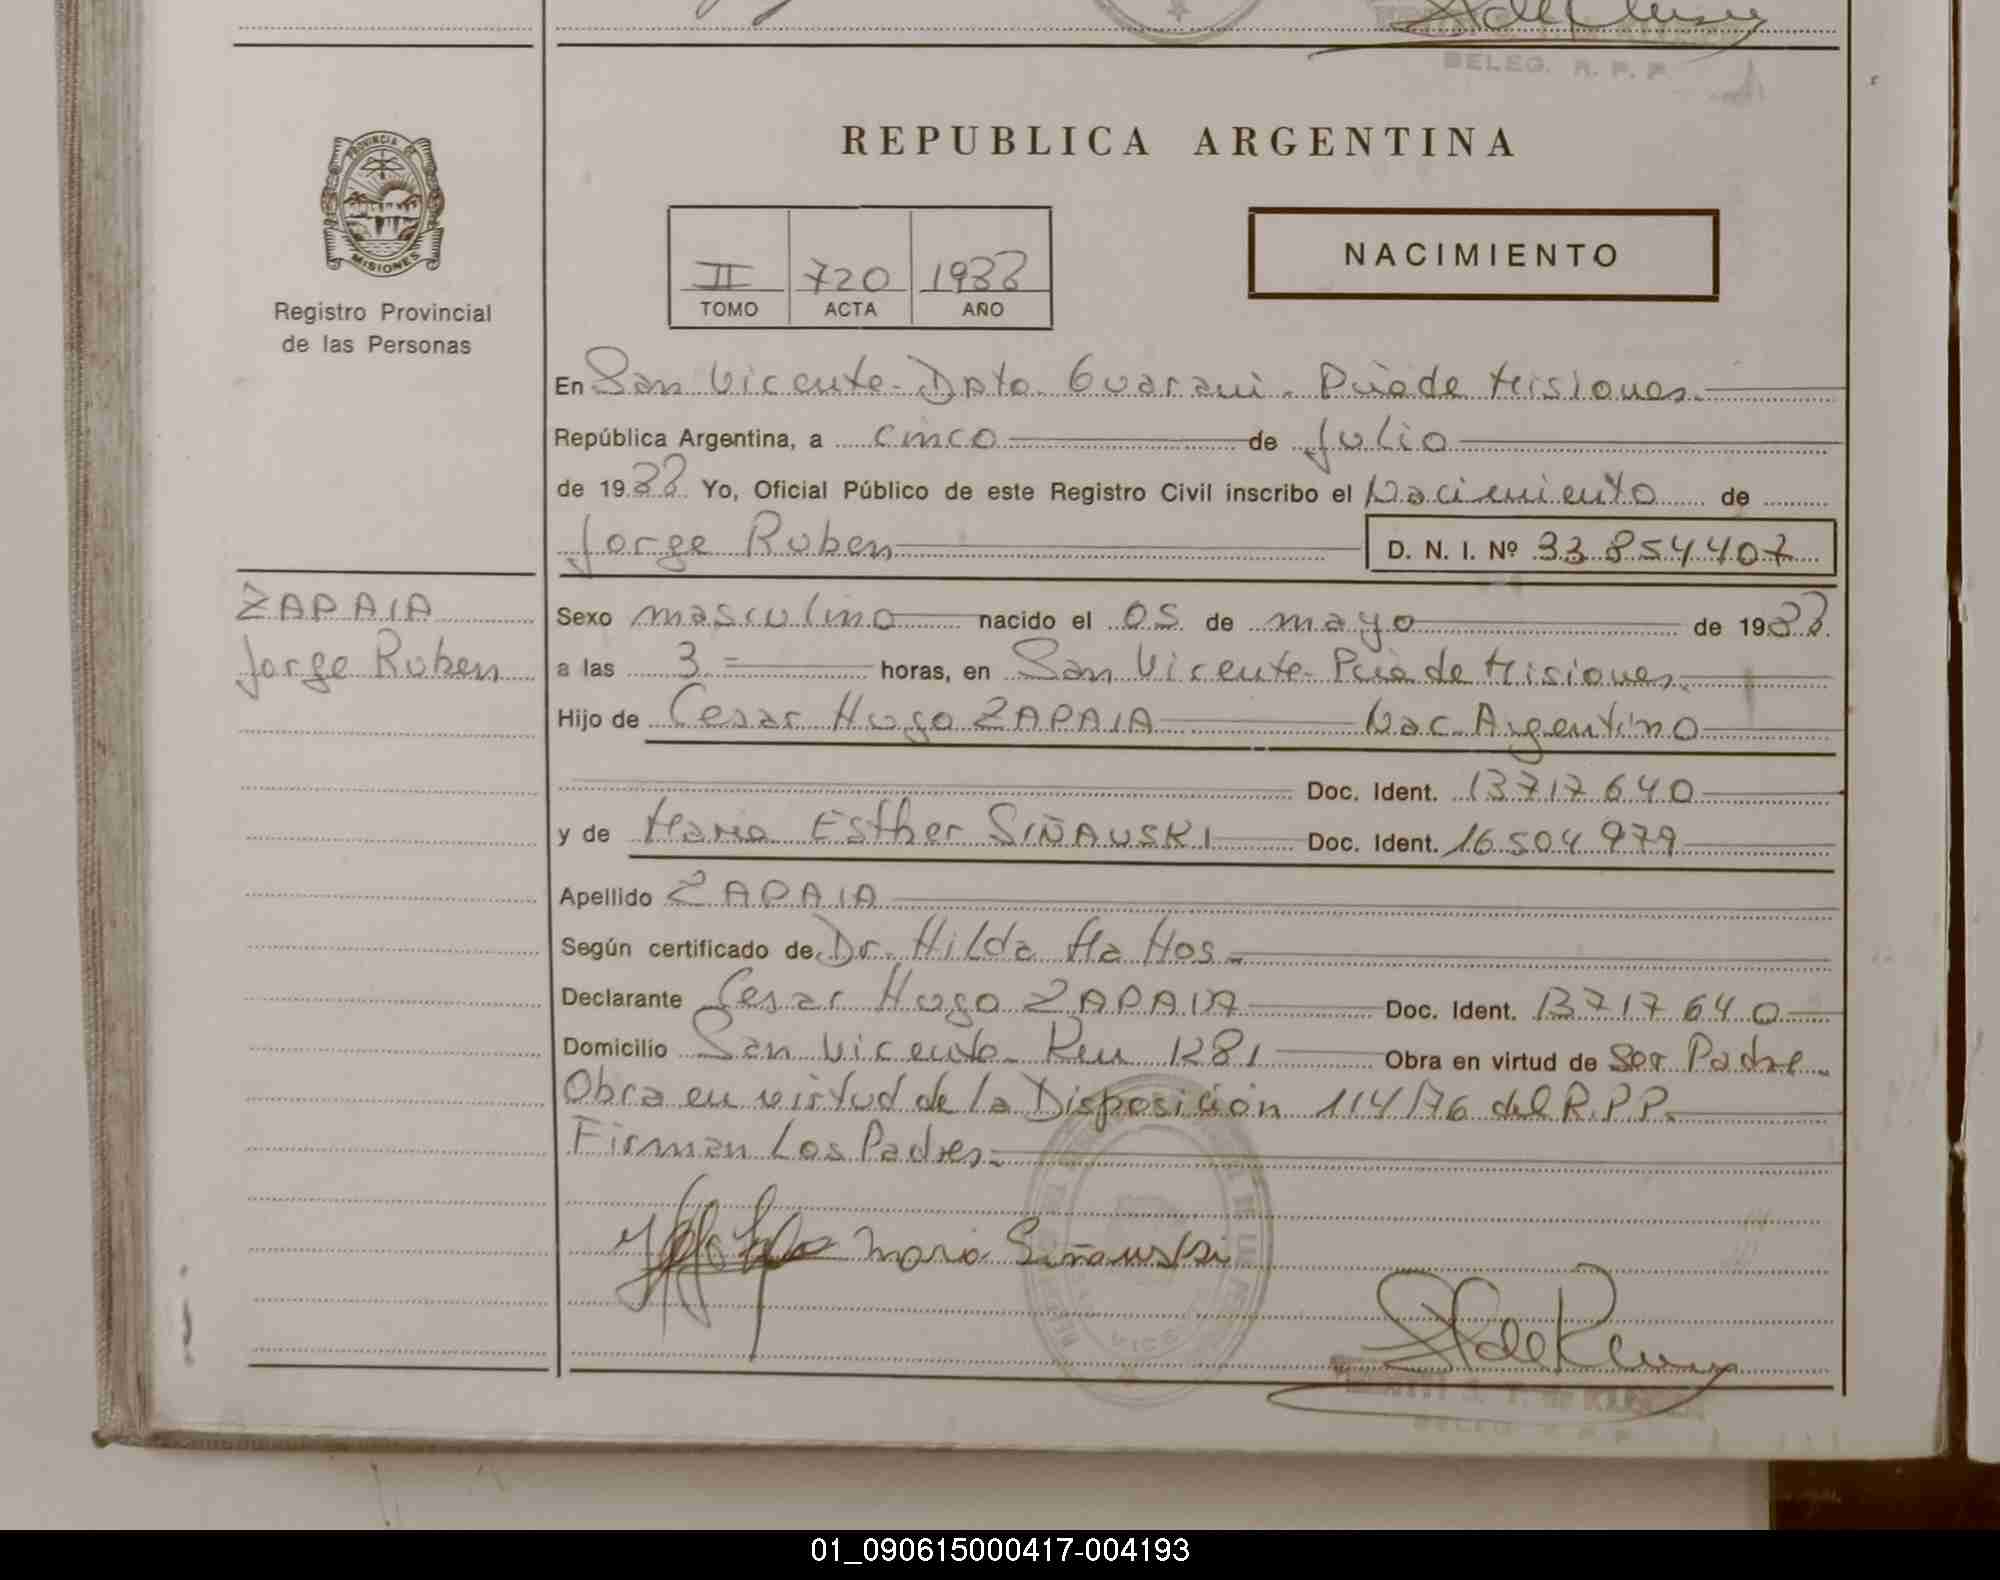 BELEG. R. P. P.
REPUBLICA ARGENTINA
PROVINCIA DE
MISIONES
Registro Provincial
de las Personas
II 720 1988
TOMO ACTA AÑO
NACIMIENTO
En San Vicente - Dpto. Guarani - Pcia de Misiones.
República Argentina, a cinco de Julio
de 1988 Yo, Oficial Público de este Registro Civil inscribo el Nacimiento de
Jorge Ruben D. N. I. Nº 33.854.407
ZAPAIA
Jorge Ruben
Sexo masculino nacido el 05 de mayo de 1988.
a las 3 = horas, en San Vicente - Pcia de Misiones.
Hijo de Cesar Hugo ZAPAIA Nac. Argentino
Doc. Ident. 13717640
y de Maria Esther SIÑAUSKI Doc. Ident. 16.504.979
Apellido ZAPAIA
Según certificado de Dr. Hilda Mattos -
Declarante Cesar Hugo ZAPAIA Doc. Ident. 13717640
Domicilio San Vicente - Km 1281 Obra en virtud de Ser Padre
Obra en virtud de la Disposición 114/76 del R.P.P.
Firman Los Padres -
Maria Siñauski
01_090615000417-004193